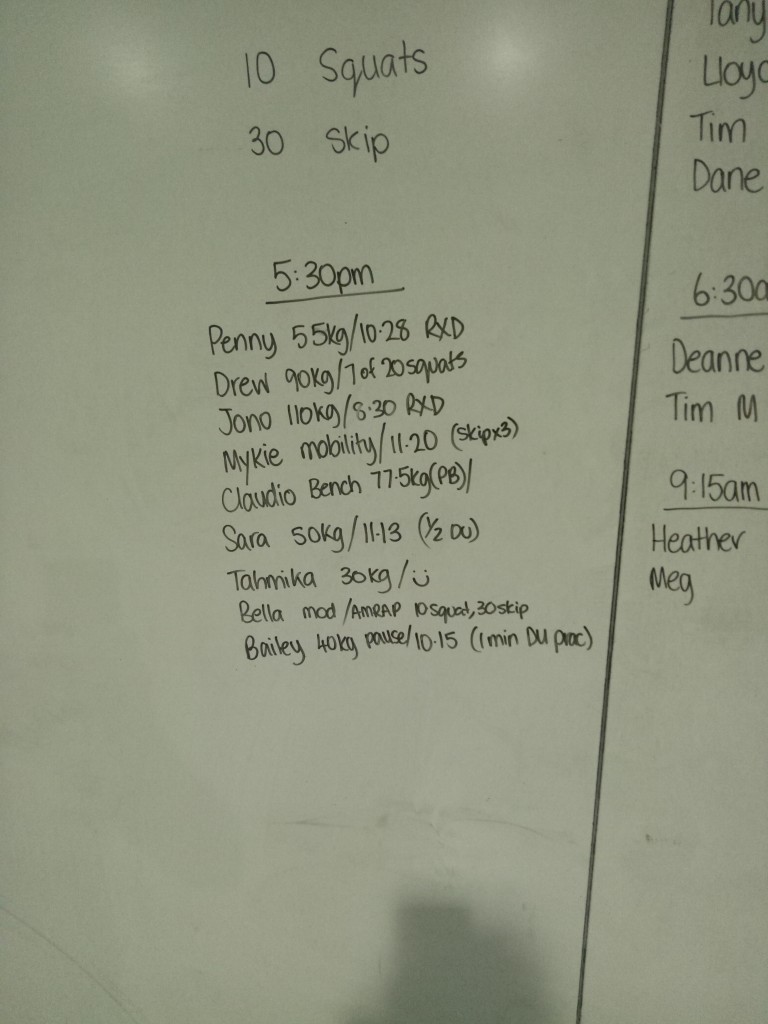 10 Squats
30 Skip
5:30pm
Penny 55kg/10.28 RXD
Drew 90kg/7 of 20 squats
Jono 110kg/8.30 RXD
Mykie mobility/11.20 (skipx3)
Claudio Bench 77.5kg(PB)/
Sara 50kg/11.13 (1/2 DU)
Tahmika 30kg/
Bella mod/AMRAP 10squat,30skip
Bailey 40kg pause/10.15 (1min DU prac)
Tany
Lloyd
Tim
Dane
6:30a
Deanne
Tim M
9:15am
Heather
Meg